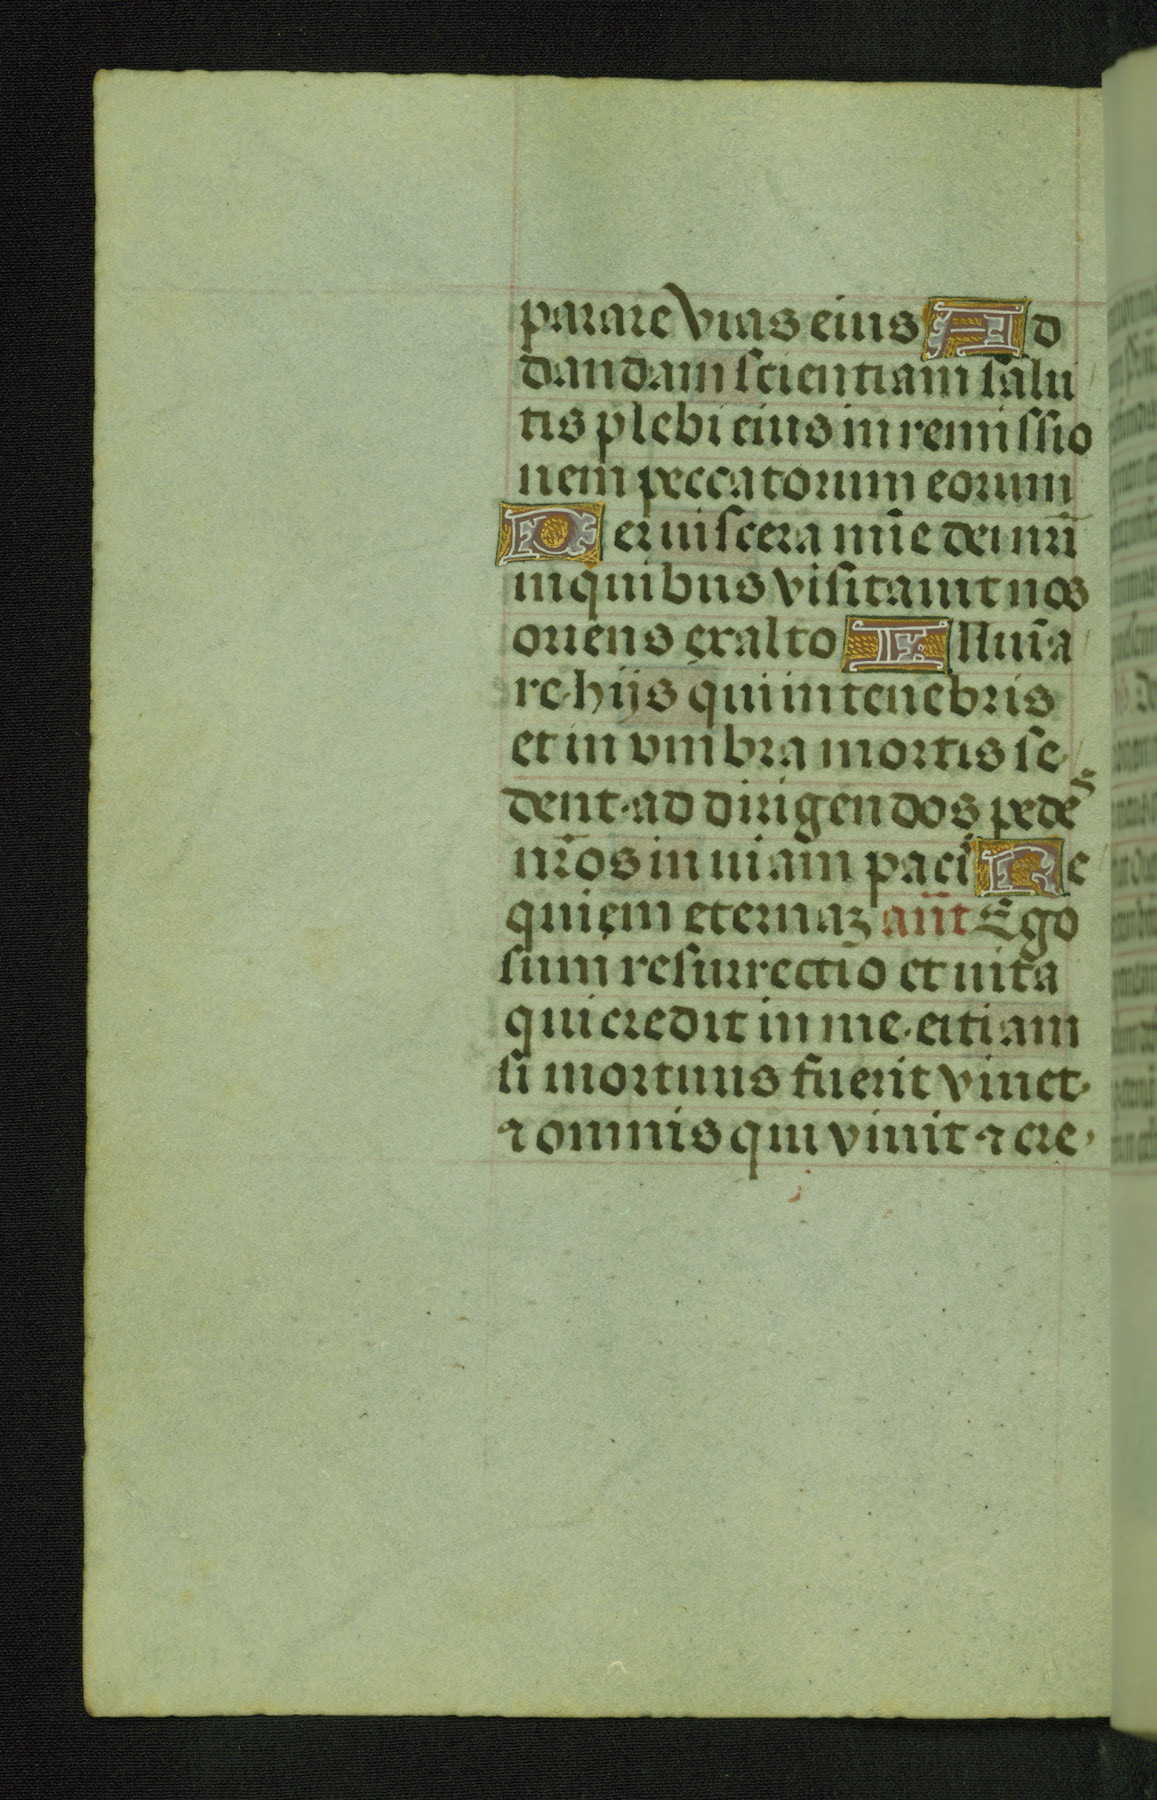 parare vias eius Ad
dandam scientiam salu
tis plebi eius in remissio
nem peccatorum eorum
Per uiscera mīe dei nrī
in quibus visitauit nos
oriens ex alto Illuīa
re hijs qui in tenebris
et in vmbra mortis se
dent·ad dirigendos pedes
nr̄os in uiam paci Re
quiem eternaꝫ ant̄ Ego
sum resurrectio et uita
qui credit in me·etiam
si mortuus fuerit viuet·
⁊ omnis qui viuit ⁊ cre